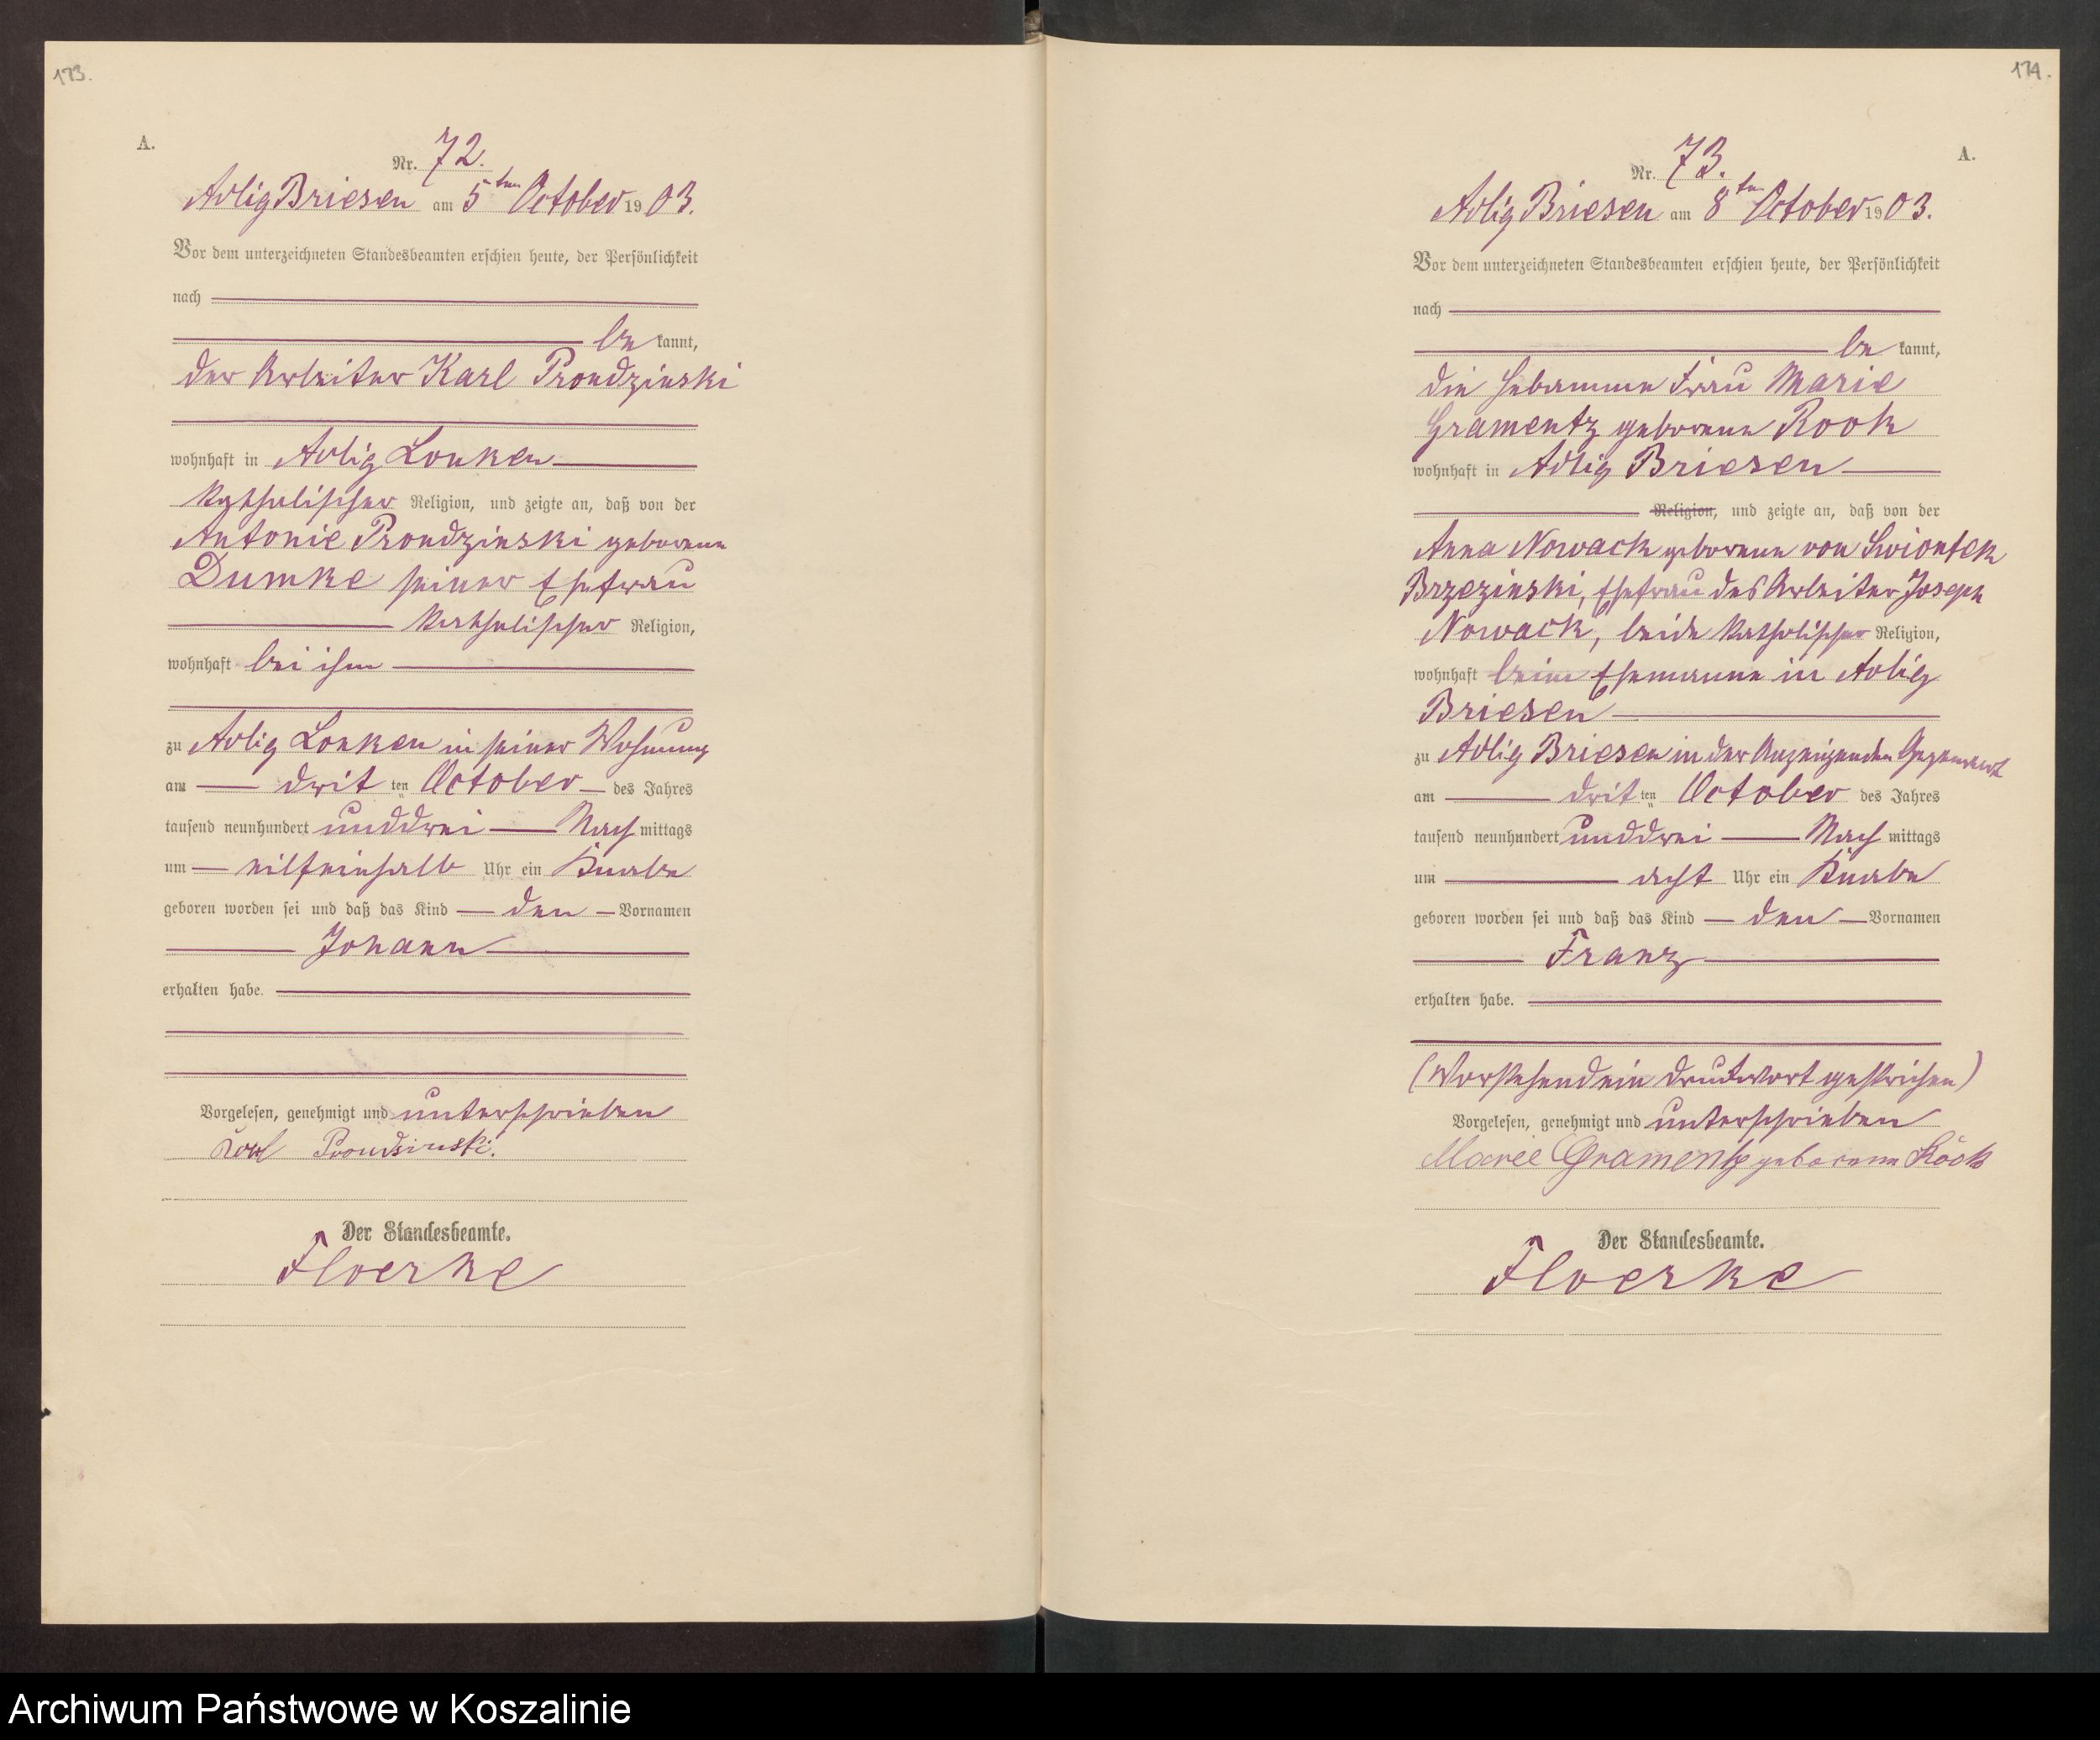 173.
A.
Nr. 72.
Adlig Briesen am 5ten October 1903.
Vor dem unterzeichneten Standesbeamten erschien heute, der Persönlichkeit
nach
be kannt,
der Arbeiter Karl Prondzinski
wohnhaft in Adlig Lonken
katholischer Religion, und zeigte an, daß von der
Antonie Prondzinski geborene
Dumke seiner Ehefrau
katholischer Religion,
wohnhaft bei ihm
zu Adlig Lonken in seiner Wohnung
am drit ten October des Jahres
tausend neunhundert unddrei Nach mittags
um eilfeinhalb Uhr ein Knabe
geboren worden sei und daß das Kind den Vornamen
Johann
erhalten habe.
Vorgelesen, genehmigt und unterschrieben
Karl Prondzinski.
Der Standesbeamte.
Floerke
174.
A.
Nr. 73.
Adlig Briesen am 8ten October 1903.
Vor dem unterzeichneten Standesbeamten erschien heute, der Persönlichkeit
nach
be kannt,
die Hebamme Frau Marie
Gramentz geborene Rook
wohnhaft in Adlig Briesen
Religion, und zeigte an, daß von der
Anna Nowack geborene von Swiontek
Brzezinski, Ehefrau des Arbeiter Joseph
Nowack, beide katholischer Religion,
wohnhaft beim Ehemanne in Adlig
Briesen
zu Adlig Briesen in der Anzeigenden Gegenwart
am drit ten October des Jahres
tausend neunhundert unddrei Nach mittags
um acht Uhr ein Knabe
geboren worden sei und daß das Kind den Vornamen
Franz
erhalten habe.
(Vorstehend ein Druckwort gestrichen)
Vorgelesen, genehmigt und unterschrieben
Marie Gramentz geborene
Der Standesbeamte.
Floerke
Archiwum Państwowe w Koszalinie